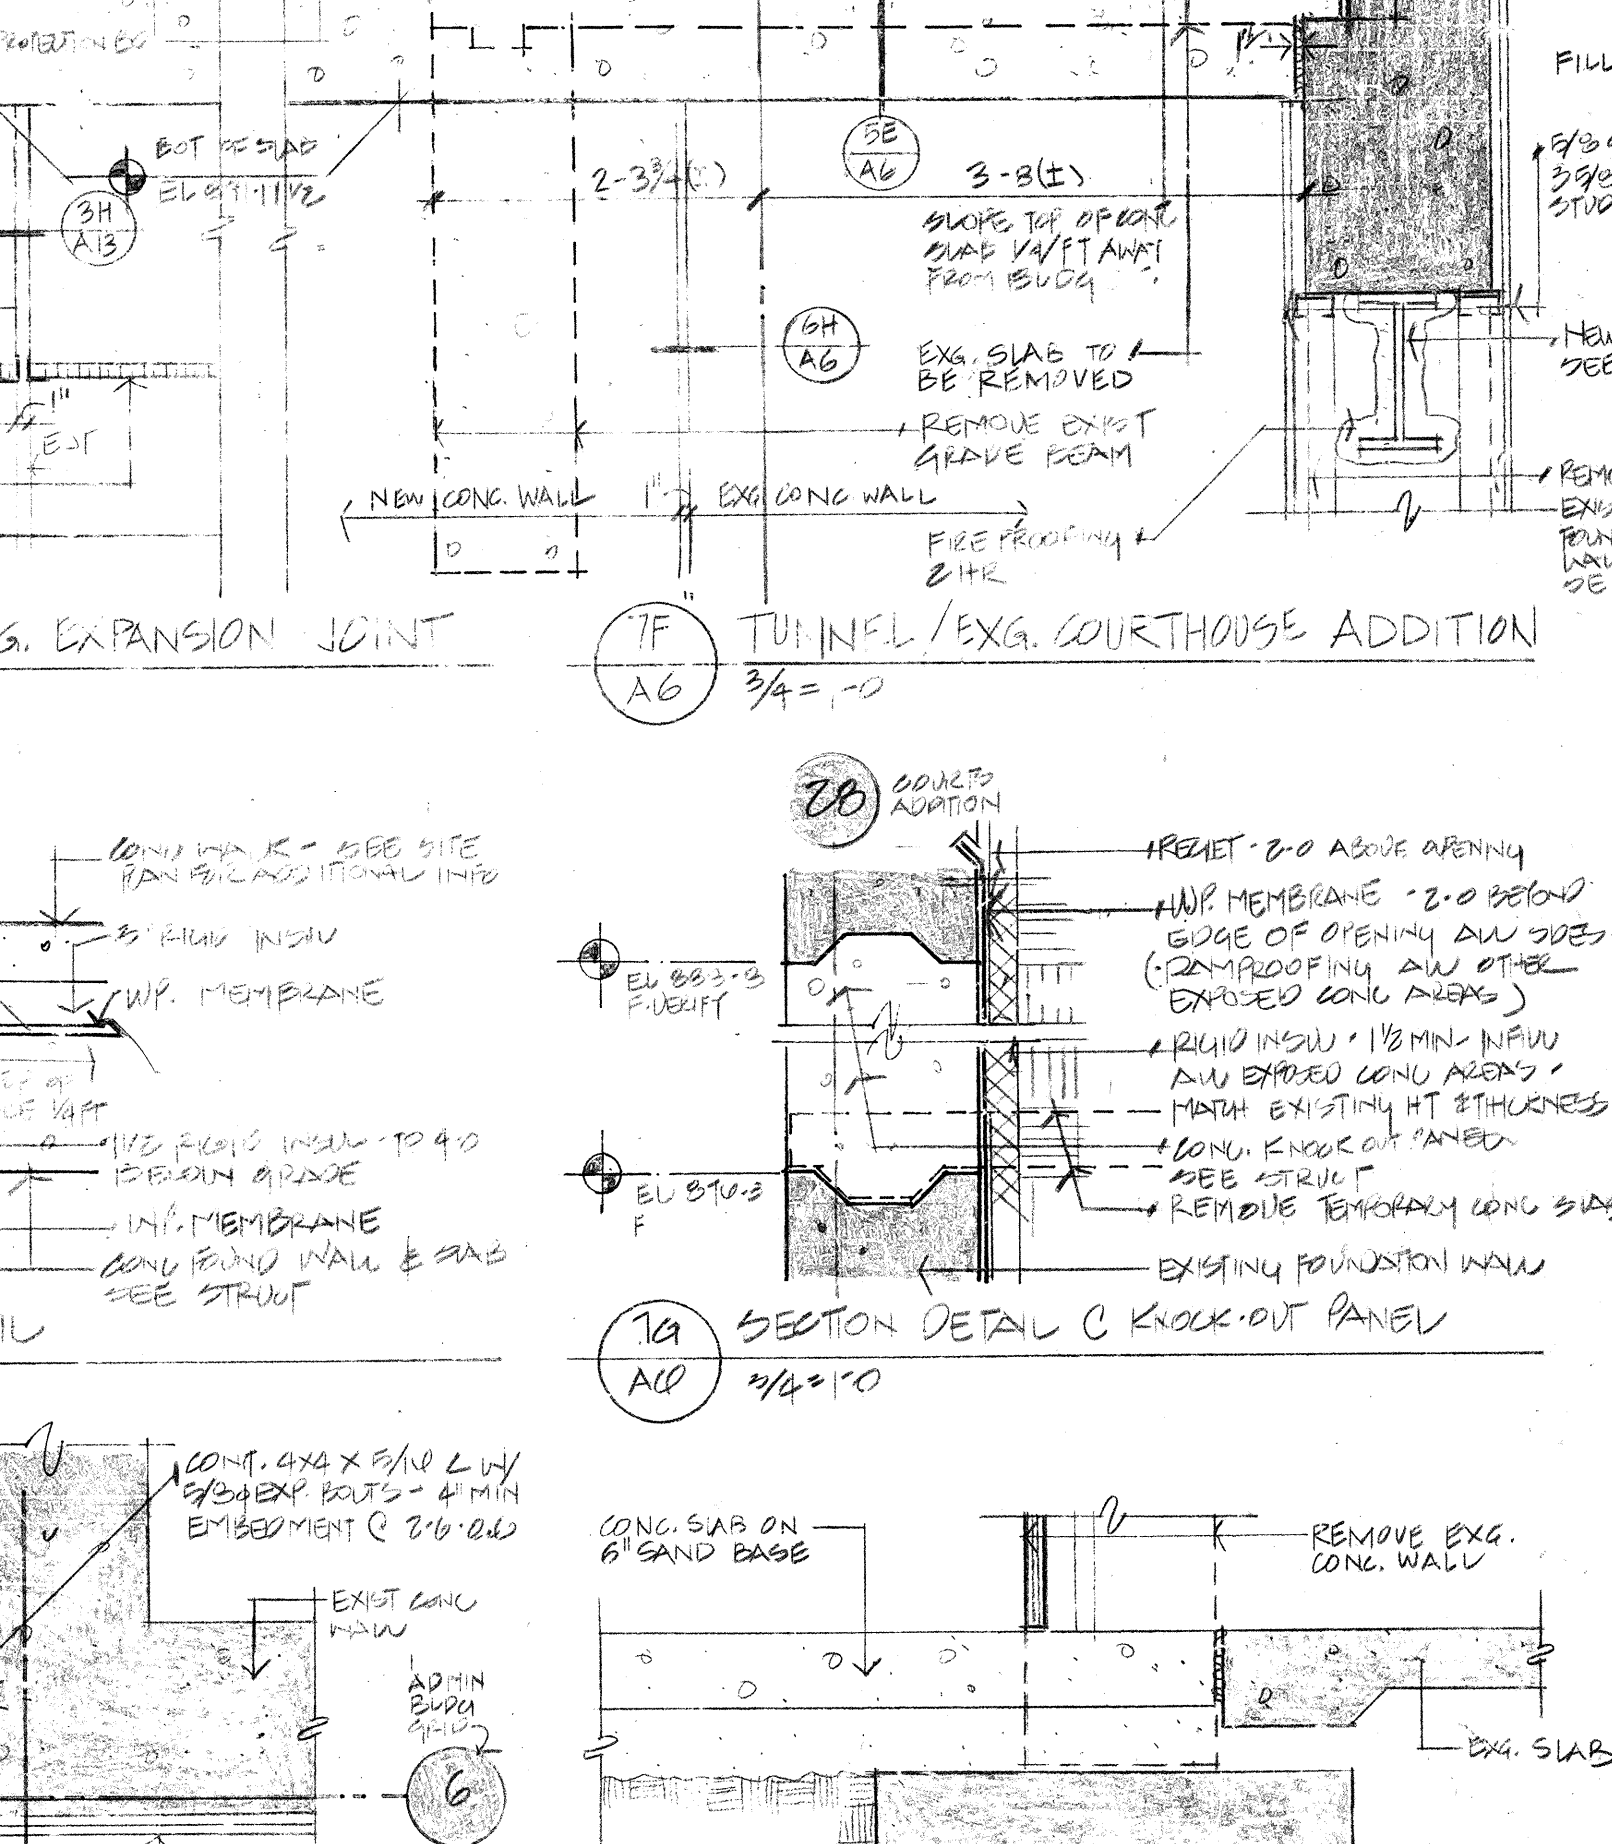 PROTECTION BD
BOT OF SLAB
3H
A13
1"
EXT
2-3 3/4(±)
5E
A6
3-8(±)
SLOPE TOP OF CONC
SLAB 1/4/FT AWAY
FROM BLDG
6H
A6
EXG. SLAB TO
BE REMOVED
REMOVE EXIST
GRADE BEAM
NEW CONC. WALL
1"
EXG CONC WALL
FIRE PROOFING
2 HR
FILL
5/8
3 5/8
STUD
NEW
SEE
REMO
EXIS
FOUN
WAL
SE
G. EXPANSION JOINT
7F
A6
TUNNEL/EXG. COURTHOUSE ADDITION
3/4= -0
CONC WALK - SEE SITE
PLAN FOR ADDITIONAL INFO
3" RIGID INSUL
WP. MEMBRANE
1/4 FT
1 1/2 RIGID INSUL - TO 4-0
BELOW GRADE
WP. MEMBRANE
CONC FOUND WALL & SLAB
SEE STRUCT
IL
28
COURTS
ADDITION
EL 883-8
F.VERIFY
EL 876-3
F
REGLET - 2-0 ABOVE OPENING
WP. MEMBRANE - 2-0 BEYOND
EDGE OF OPENING ALL SIDES
(DAMPROOFING ALL OTHER
EXPOSED CONC AREAS)
RIGID INSUL - 1 1/2 MIN - INFILL
ALL EXPOSED CONC AREAS -
MATCH EXISTING HT & THICKNESS
CONC. KNOCK OUT PANEL
SEE STRUCT
REMOVE TEMPORARY CONC SLAB
EXISTING FOUNDATION WALL
7G
A6
SECTION DETAIL C KNOCK-OUT PANEL
3/4=1-0
CONT. 4X4 X 5/16 L W/
5/8φ EXP. BOLTS - 4" MIN
EMBEDMENT @ 2-6 O.C.
EXIST CONC
WALL
ADMIN
BLDG
GRID
6
CONC. SLAB ON
6" SAND BASE
REMOVE EXG.
CONC. WALL
EXG. SLAB